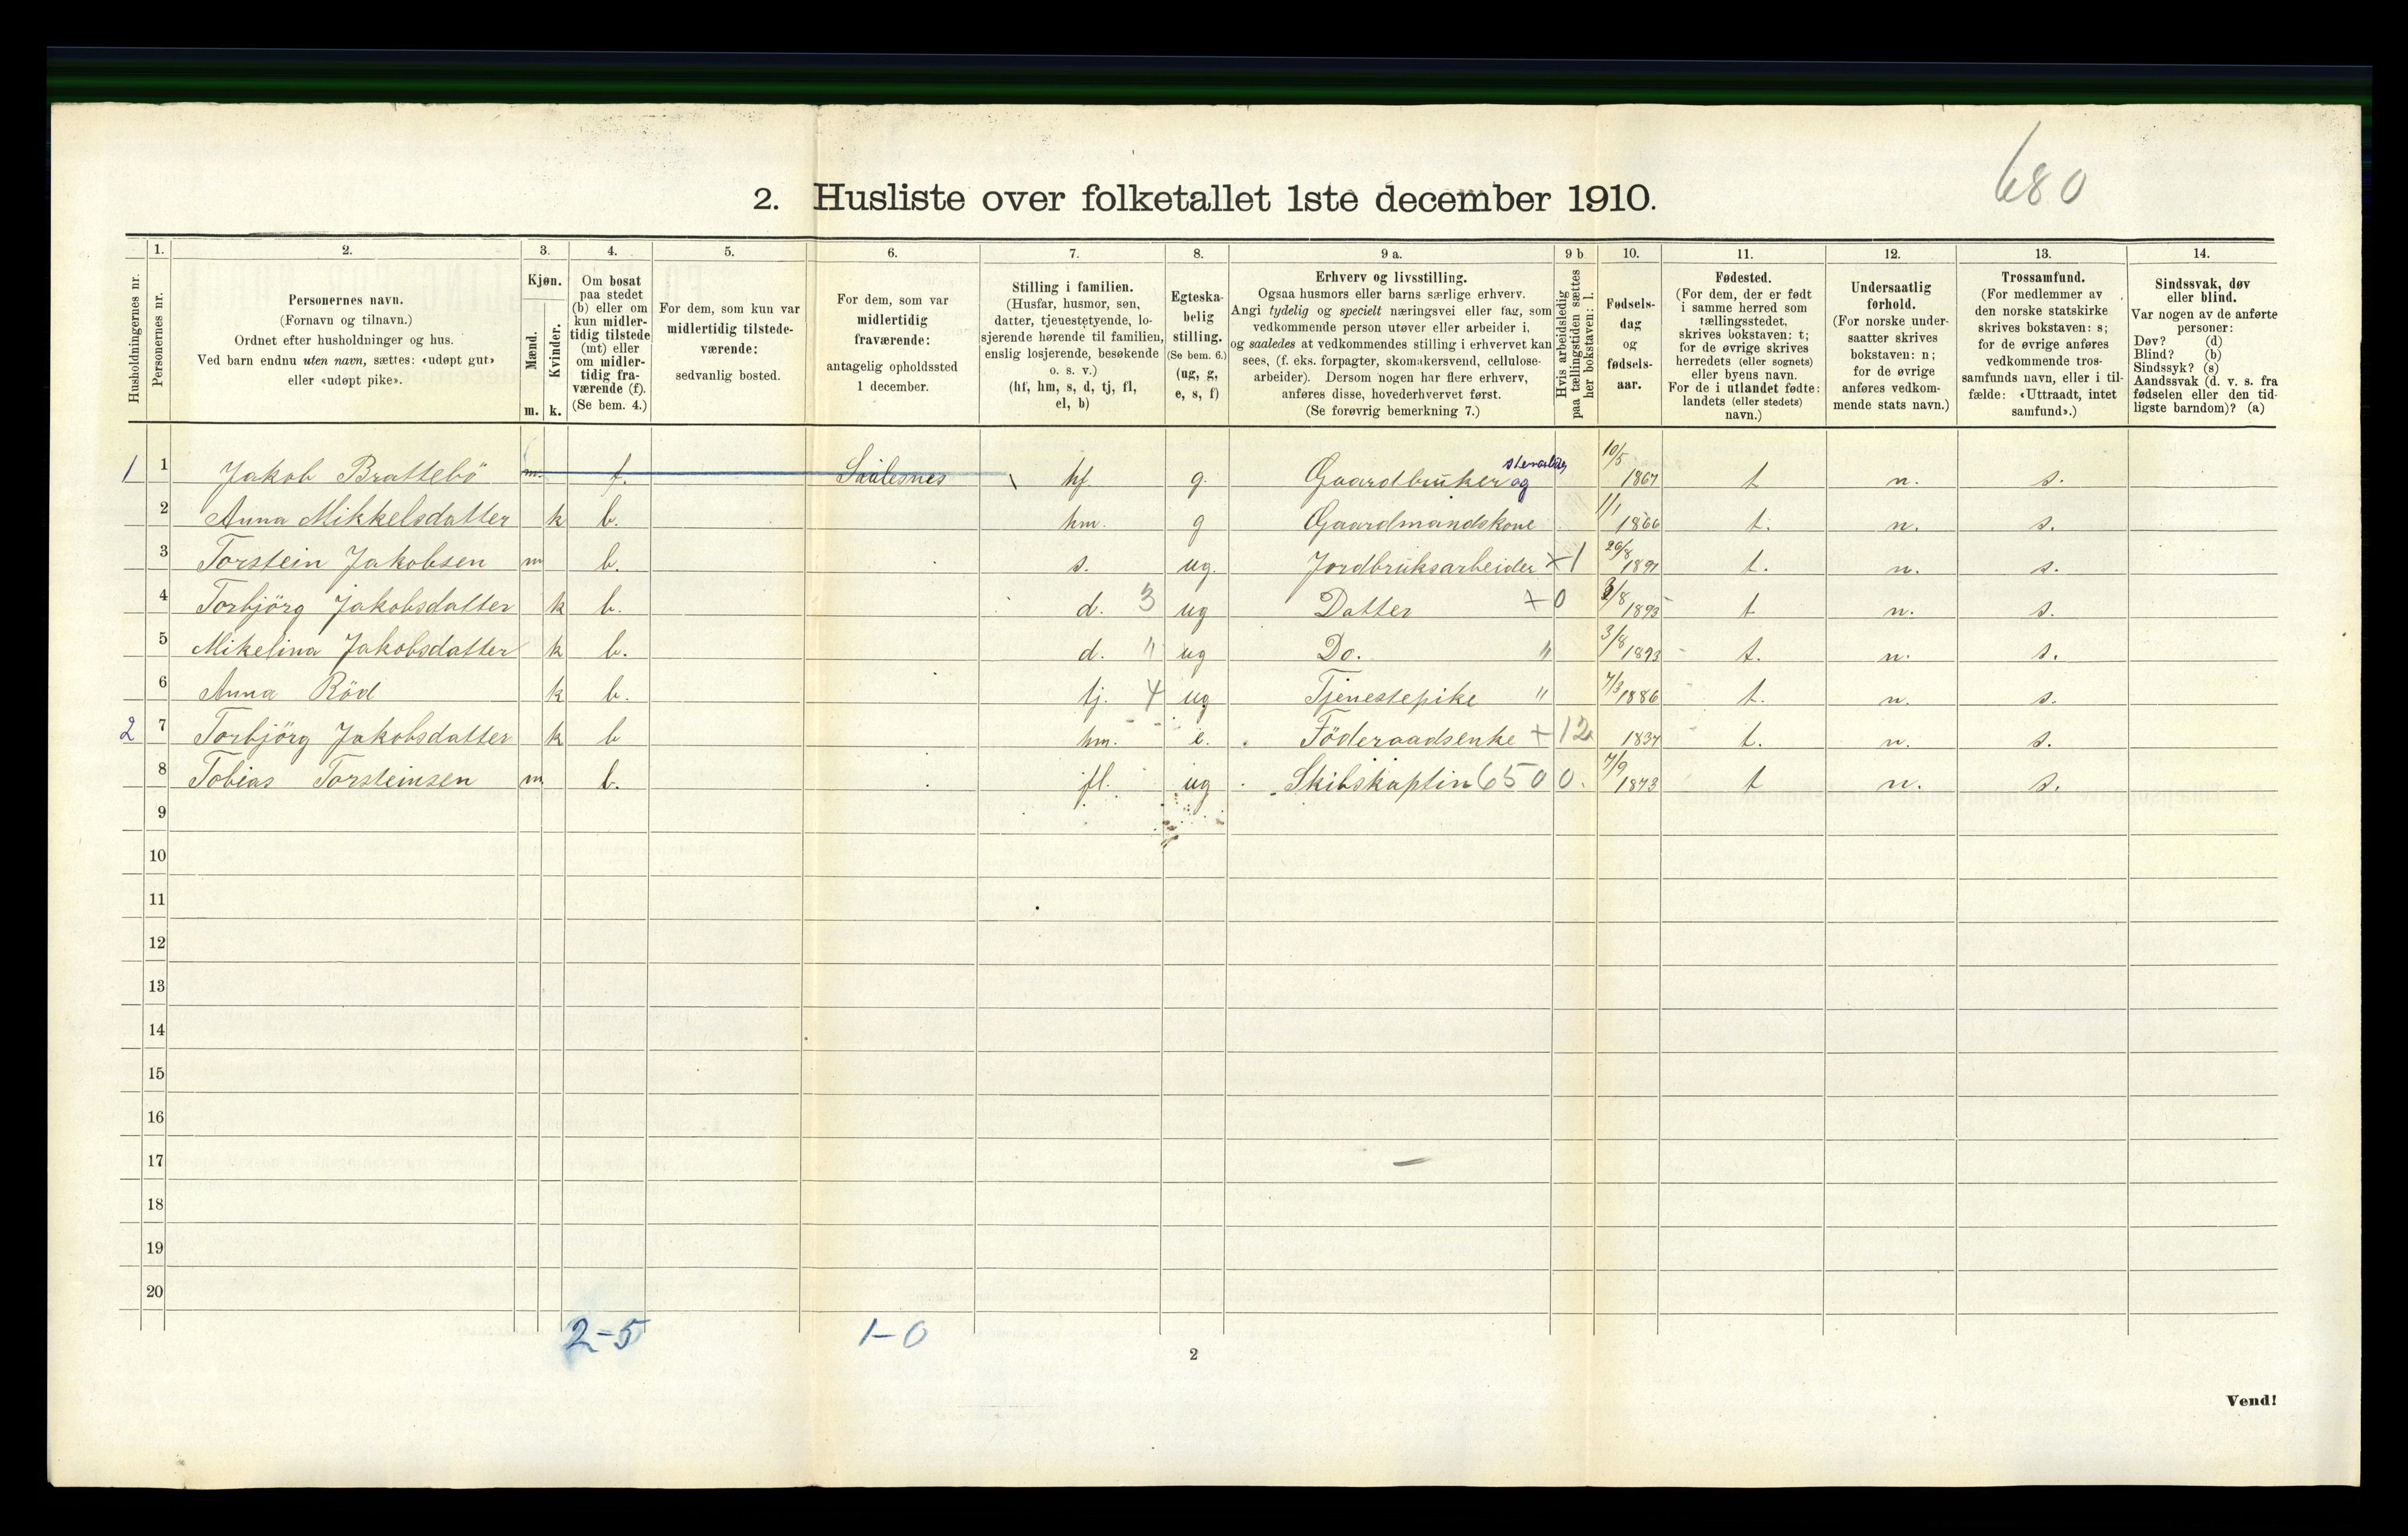 680
2. Husliste over folketallet 1ste december 1910.
Husholdningernes nr.
1.
Personernes nr.
2.
Personernes navn.
(Fornavn og tilnavn.)
Ordnet efter husholdninger og hus.
Ved barn endnu uten navn, sættes: «udøpt gut»
eller «udøpt pike».
3.
Kjøn.
Mænd.
Kvinder.
m. k.
4.
Om bosat
paa stedet
(b) eller om
kun midler-
tidig tilstede
(mt) eller
om midler-
tidig fra-
værende (f).
(Se bem. 4.)
5.
For dem, som kun var
midlertidig tilstede-
værende:
sedvanlig bosted.
6.
For dem, som var
midlertidig
fraværende:
antagelig opholdssted
1 december.
7.
Stilling i familien.
(Husfar, husmor, søn,
datter, tjenestetyende, lo-
sjerende hørende til familien,
enslig losjerende, besøkende
o. s. v.)
(hf, hm, s, d, tj, fl,
el, b)
8.
Egteska-
belig
stilling.
(Se bem. 6.)
(ug, g,
e, s, f)
9 a.
Erhverv og livsstilling.
Ogsaa husmors eller barns særlige erhverv.
Angi tydelig og specielt næringsvei eller fag, som
vedkommende person utøver eller arbeider i,
og saaledes at vedkommendes stilling i erhvervet kan
sees, (f. eks. forpagter, skomakersvend, cellulose-
arbeider). Dersom nogen har flere erhverv,
anføres disse, hovederhvervet først.
(Se forøvrig bemerkning 7.)
9 b
Hvis arbeidsledig
paa tællingstiden sættes
her bokstaven: l.
10.
Fødsels-
dag
og
fødsels-
aar.
11.
Fødested.
(For dem, der er født
i samme herred som
tællingsstedet,
skrives bokstaven: t;
for de øvrige skrives
herredets (eller sognets)
eller byens navn.
For de i utlandet fødte:
landets (eller stedets)
navn.)
12.
Undersaatlig
forhold.
(For norske under-
saatter skrives
bokstaven: n;
for de øvrige
anføres vedkom-
mende stats navn.)
13.
Trossamfund.
(For medlemmer av
den norske statskirke
skrives bokstaven: s;
for de øvrige anføres
vedkommende tros-
samfunds navn, eller i til-
fælde: «Uttraadt, intet
samfund».)
14.
Sindssvak, døv
eller blind.
Var nogen av de anførte
personer:
Døv? (d)
Blind? (b)
Sindssyk? (s)
Aandssvak (d. v. s. fra
fødselen eller den tid-
ligste barndom)? (a)
1 1 Jakob Brattebö m. f. hf g. Gaardbruker og 10/5 1867 t n. s.
2 Anna Mikkelsdatter k b. hm. g Gaardmandskone 1/1 1866 t. n. s.
3 Torstein Jakobsen m b. s. ug. Jordbruksarbeider +1 26/8 1891 t. n. s.
4 Torbjörg Jakobsdatter k b. d. 3 ug Datter +0 3/8 1893 t n. s.
5 Mikelina Jakobsdatter k b. d. " ug Do. " 3/8 1893 t. n. s.
6 Anna Röd k b. tj. 4 ug Tjenestepike " 7/3 1886 t. n. s.
2 7 Torbjörg Jakobsdatter k b hm. e. Föderaadsenke +12 1837 t. n. s.
8 Tobias Torsteinsen m b. fl. ug Skibskaptin 6500. 7/9 1873 t n. s.
9
10
11
12
13
14
15
16
17
18
19
20
2-5 1-0
2
Vend!